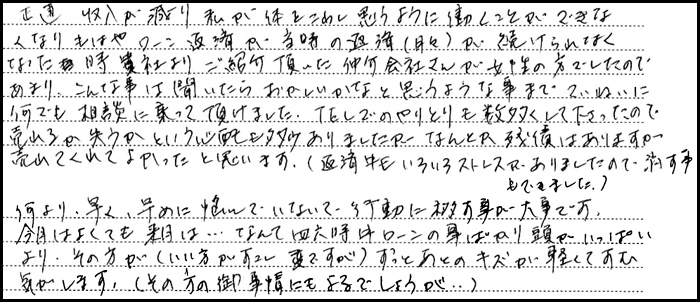 正直 収入が減り 私が体をこわし思うように働くことができな
くなりもはやローン返済が当時の返済(月々)が続けられなく
なった時 貴社よりご紹介頂いた仲介会社さんが女性の方でしたので
あまり、こんな事は聞いたらおかしいかなと思うような事まで ていねいに
何でも相談に乗って頂けました。TELでのやりとりも数多くして下さったので
売れるか失うかという心配も多々ありましたが なんとか残債はありますが
売れてくれてよかったと思います。(返済中もいろいろストレスがありましたので 消す事
もできました。)
何より、早く、早めに悩んでいないで行動に移す事が大事です。
今月はよくても来月は… なんて四六時中ローンの事ばかり頭がいっぱい
より、その方が(いい方がすこし変ですが)ずっとあとのキズが軽くてすむ
気がします。(その方の御事情にもよるでしょうが‥)